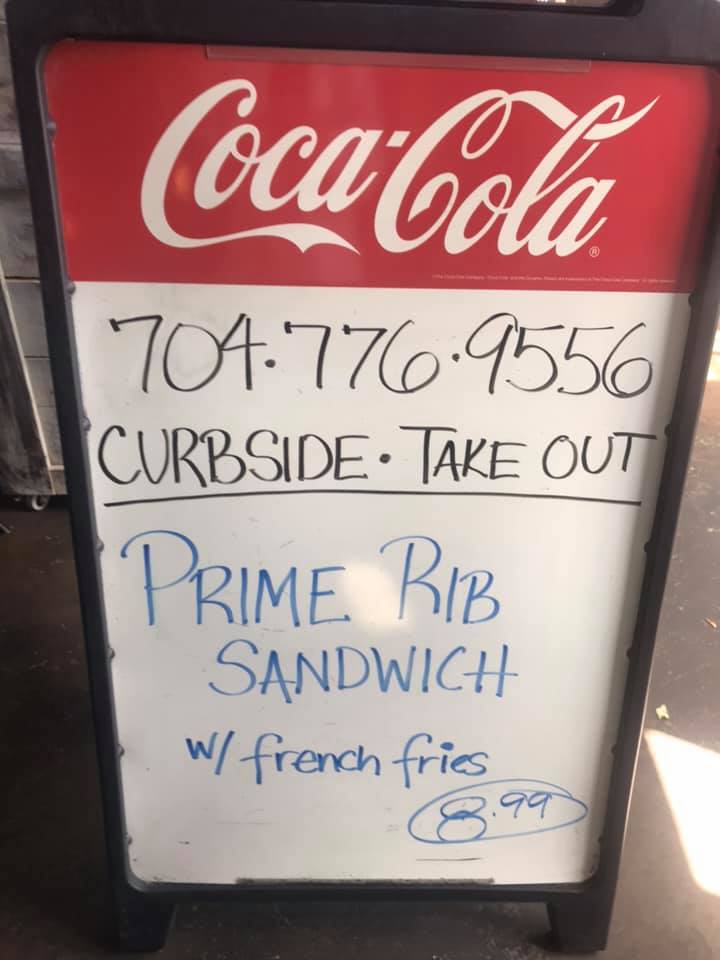 Coca-Cola
®
704.776.9556
CURBSIDE • TAKE OUT
PRIME RIB
SANDWICH
w/ french fries
8.99